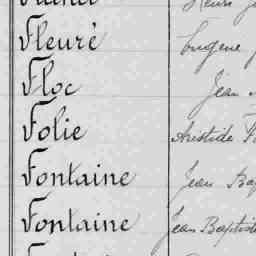 Fleuré Eugène
Floc Jean
Folie Aristide
Fontaine Jean
Fontaine Jean Baptiste